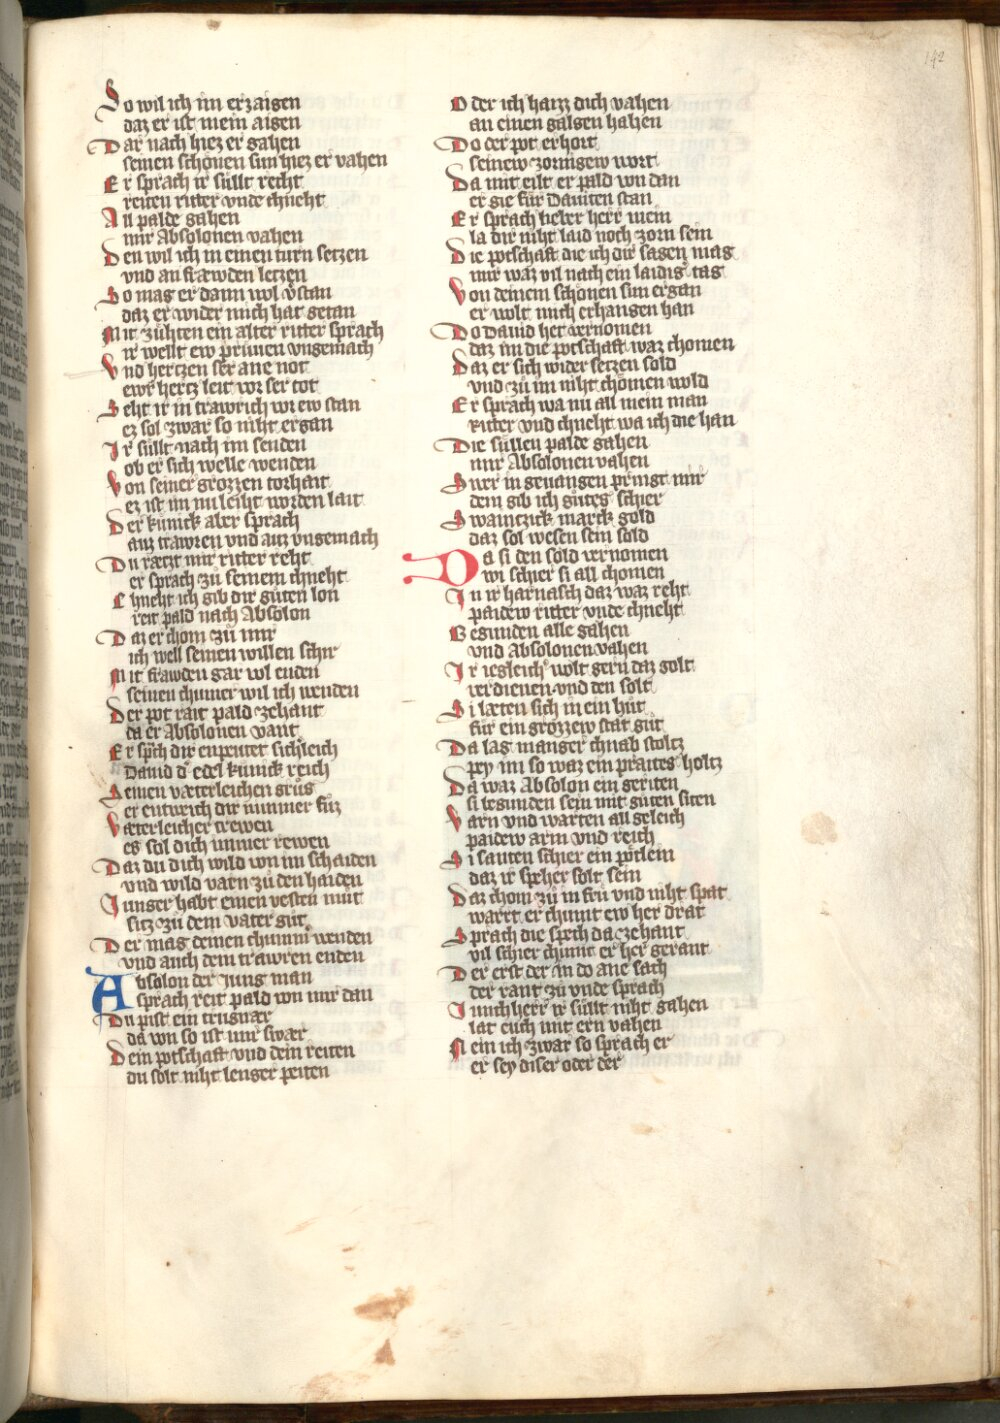 142
So wil ich im erzaigen
daz er ist mein aigen
Dar nach hiez er gahen
seinen schönen sun hiez er vahen
Er sprach ir süllt recht
reiten ritter vnde chneht
All palde gahen
mir Absolonen vahen
Den wil ich in einen turn setzen
vnd an fræwden letzen
So mag er dann wol vstan
daz er wider mich hat getan
Mit zühten ein alter ritter sprach
ir wellt ew prüuen vngemach
Vnd hertzen ser ane not
ewr hertz leit vor ser tot
Seht ir in trawrich vor ew stan
ez sol zwar so niht ergan
Ir süllt nach im senden
ob er sich welle wenden
Von seiner grozzen torhait
ez ist im nu leiht worden lait
Der künick aber sprach
auz trawren vnd auz vngemach
Du rætzt mir ritter reht
er sprach zu seinem chneht
Chneht ich gib dir guten lon
reit pald nach Absolon
Daz er chom zu mir
ich well seinen willen schir
Mit frawden gar wol enden
seinen chumer wil ich wenden
Der pot rait pald zehant
da er Absolonen vant
Er spch dir enpeutet sichleich
Dauid d edel künick reich
Seinen væterleichen grus
er entwich dir nimmer fuz
Væterleicher trewen
es sol dich immer rewen
Daz du dich wild von im schaiden
vnd wild varn zu den haiden
Iunger habt einen vesten mut
sitz zu dem vater gut
Der mag deinen chumm wenden
vnd auch dein trawren enden
Absolon der Jung man
sprach reit pald von mir dan
Du pist ein trugnær
da von so ist mir swær
Dein potschaft vnd dein reiten
du solt niht lenger peiten
Oder ich haizz dich vahen
an einen galgen hahen
Do der pot erhort
seinew zornigew wort
Da mit eilt er pald von dan
er gie für Dauiten stan
Er sprach lieber herr mein
la dir niht laid noch zorn sein
Die potschaft die ich dir sagen mag
mir waz vil nach ein laidig tag
Von deinem schönen sun ergan
er wolt mich erhangen han
Do Dauid het vernomen
daz im die potschaft waz chomen
Daz er sich wider setzen sold
vnd zu im niht chomen wold
Er sprach wa nu all mein man
Ritter vnd chneht wa ich die han
Die süllen palde gahen
mir Absolonen vahen
Swer in geuangen pringt mir
dem gib ich gutes schier
Swaintzick marck gold
daz sol wesen sein sold
Da si den sold vernomen
wi schier si all chomen
In ir harnasch daz waz reht
paidew ritter vnde chneht
Begunden alle gahen
vnd Absolonen vahen
Ir iegleich wolt gern daz golt
verdienen vnd den solt
Si læten sich in ein hut
für ein grozzew stat gut
Da lag manger chnab stoltz
pey im so waz ein praites holtz
Da waz Absolon ein geriten
si begunden sein mit guten siten
Varn vnd warten all geleich
paidew arm vnd reich
Si santen schier ein pötlein
daz ir speher solt sein
Daz chom zu in fru vnd niht spat
wartt er chumt ew her drat
Sprach die spech da zehant
vil schier chumt er her gerant
Der erst der in do ane sach
der rant zu vnde sprach
Iunchherr ir süllt niht gahen
lat euch mit ern vahen
Nein ich zwar so sprach er
er sey diser oder der